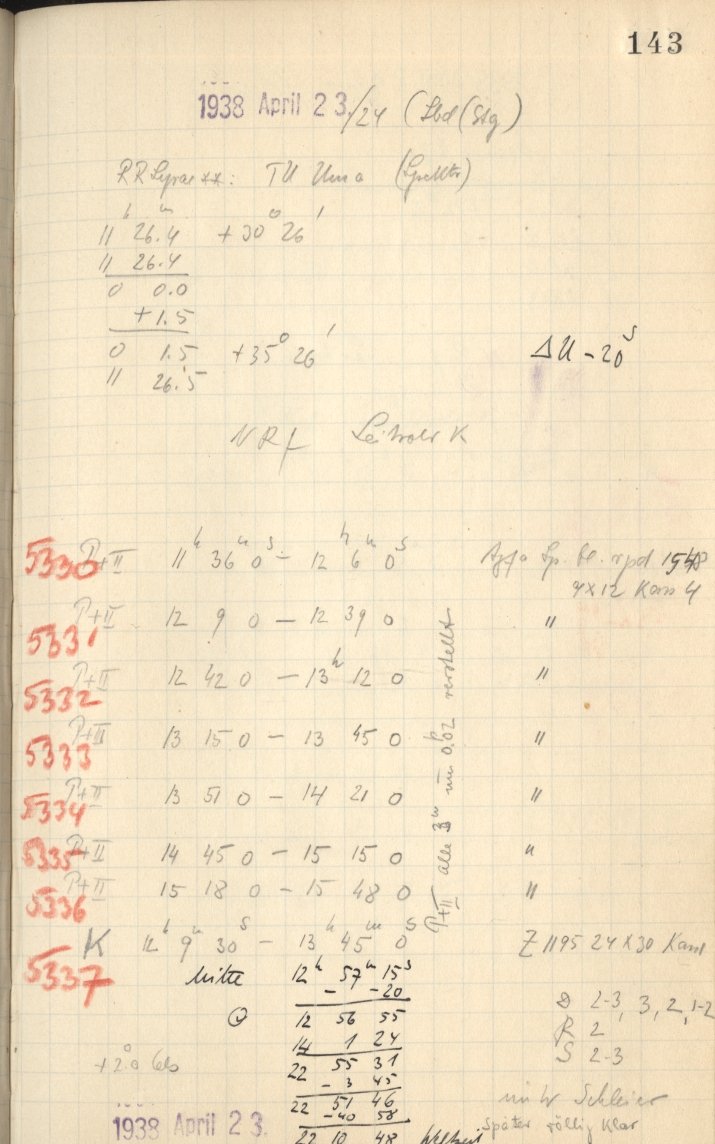 143
1938 April 23/24 (Lbd (Stg)
RR Lyrae xx: TU Uma
h m
11 26.4 +30° 26'
11 26.4
0 0.0
+1.5
0 1.5 +35° 26'
11 26.5
ΔU -20s
NRf K
5330 P+II 11h 36m 0s - 12h 6m 0s Agfa Sp. bl. rpd
4x12 Kass 4
5331 P+II 12 9 0 - 12 39 0 "
5332 P+II 12 42 0 - 13h 12 0 "
5333 P+II 13 15 0 - 13 45 0 "
5334 P+II 13 51 0 - 14 21 0 "
5335 P+II 14 45 0 - 15 15 0 "
5336 P+II 15 18 0 - 15 48 0 "
P+II alle 3m um 0.02 verstellt
5337 K 12h 9m 30s - 13h 45m 0s Z 1195 24x30 Kass
Mitte 12h 57m 15s
- -20
12 56 55
14 1 24
22 55 31
- 3 45
22 51 46
-40 58
22 10 48 Weltzeit
D 2-3, 3, 2, 1-2
R 2
S 2-3
+2°0
Schleier
später völlig klar
1938 April 23.